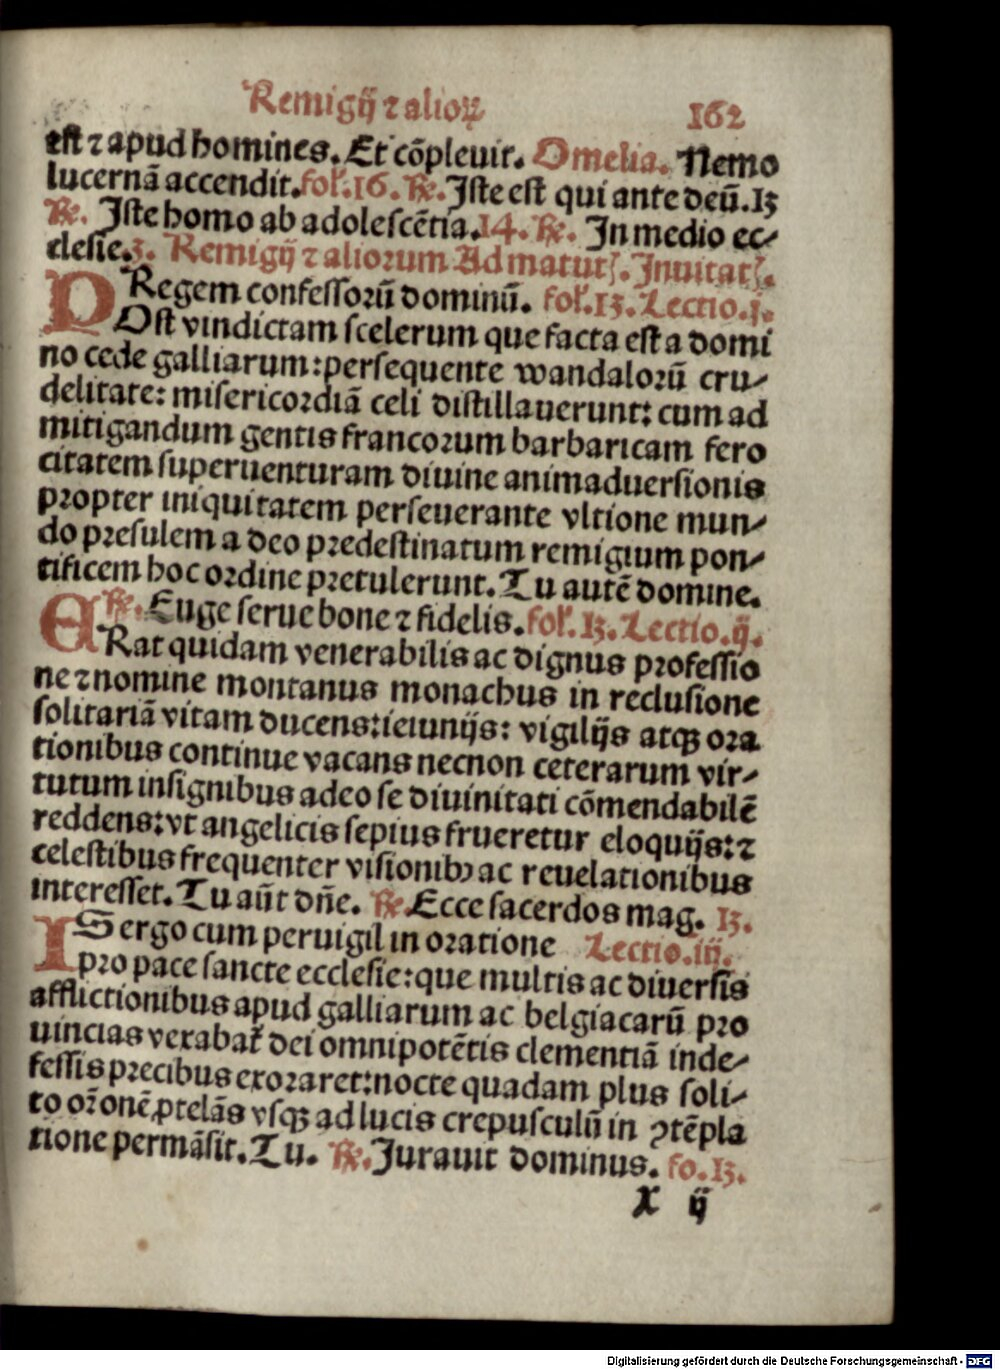 Remigij ⁊ alioꝝ 162
est ⁊ apud homines. Et cōpleuit. Omelia. Nemo
lucernā accendit. fol'. 16. ℟. Iste est qui ante deū. 13
℟. Iste homo ab adolescētia. 14. ℟. In medio ec⸗
clesie. 3. Remigij ⁊ aliorum Ad matut'. Inuitat'.
Regem confessorū dominū. fol'. 13. Lectio. j.
POst vindictam scelerum que facta est a domi
no cede galliarum: persequente wandalorū cru⸗
delitate: misericordiā celi distillauerunt: cum ad
mitigandum gentis francorum barbaricam fero
citatem superuenturam diuine animaduersionis
propter iniquitatem perseuerante vltione mun⸗
do presulem a deo predestinatum remigium pon⸗
tificem hoc ordine pretulerunt. Tu autē domine.
℟. Euge serue bone ⁊ fidelis. fol'. 13. Lectio. ij.
ERat quidam venerabilis ac dignus professio
ne ⁊ nomine montanus monachus in reclusione
solitariā vitam ducens: ieiunijs: vigilijs atqꝫ ora
tionibus continue vacans necnon ceterarum vir⸗
tutum insignibus adeo se diuinitati cōmendabilē
reddens: vt angelicis sepius frueretur eloquijs: ⁊
celestibus frequenter visionibꝫ ac reuelationibus
interesset. Tu aūt dn̄e. ℟. Ecce sacerdos mag. 13.
IS ergo cum peruigil in oratione Lectio. iij.
pro pace sancte ecclesie: que multis ac diuersis
afflictionibus apud galliarum ac belgiacarū pro
uincias vexabat' dei omnipotētis clementiā inde⸗
fessis precibus exoraret: nocte quadam plus soli⸗
to or̄onē ꝓtelās vsqꝫ ad lucis crepusculū in ꝯtēpla
tione permāsit. Tu. ℟. Jurauit dominus. fo. 13.
X ij
Digitalisierung gefördert durch die Deutsche Forschungsgemeinschaft - DFG